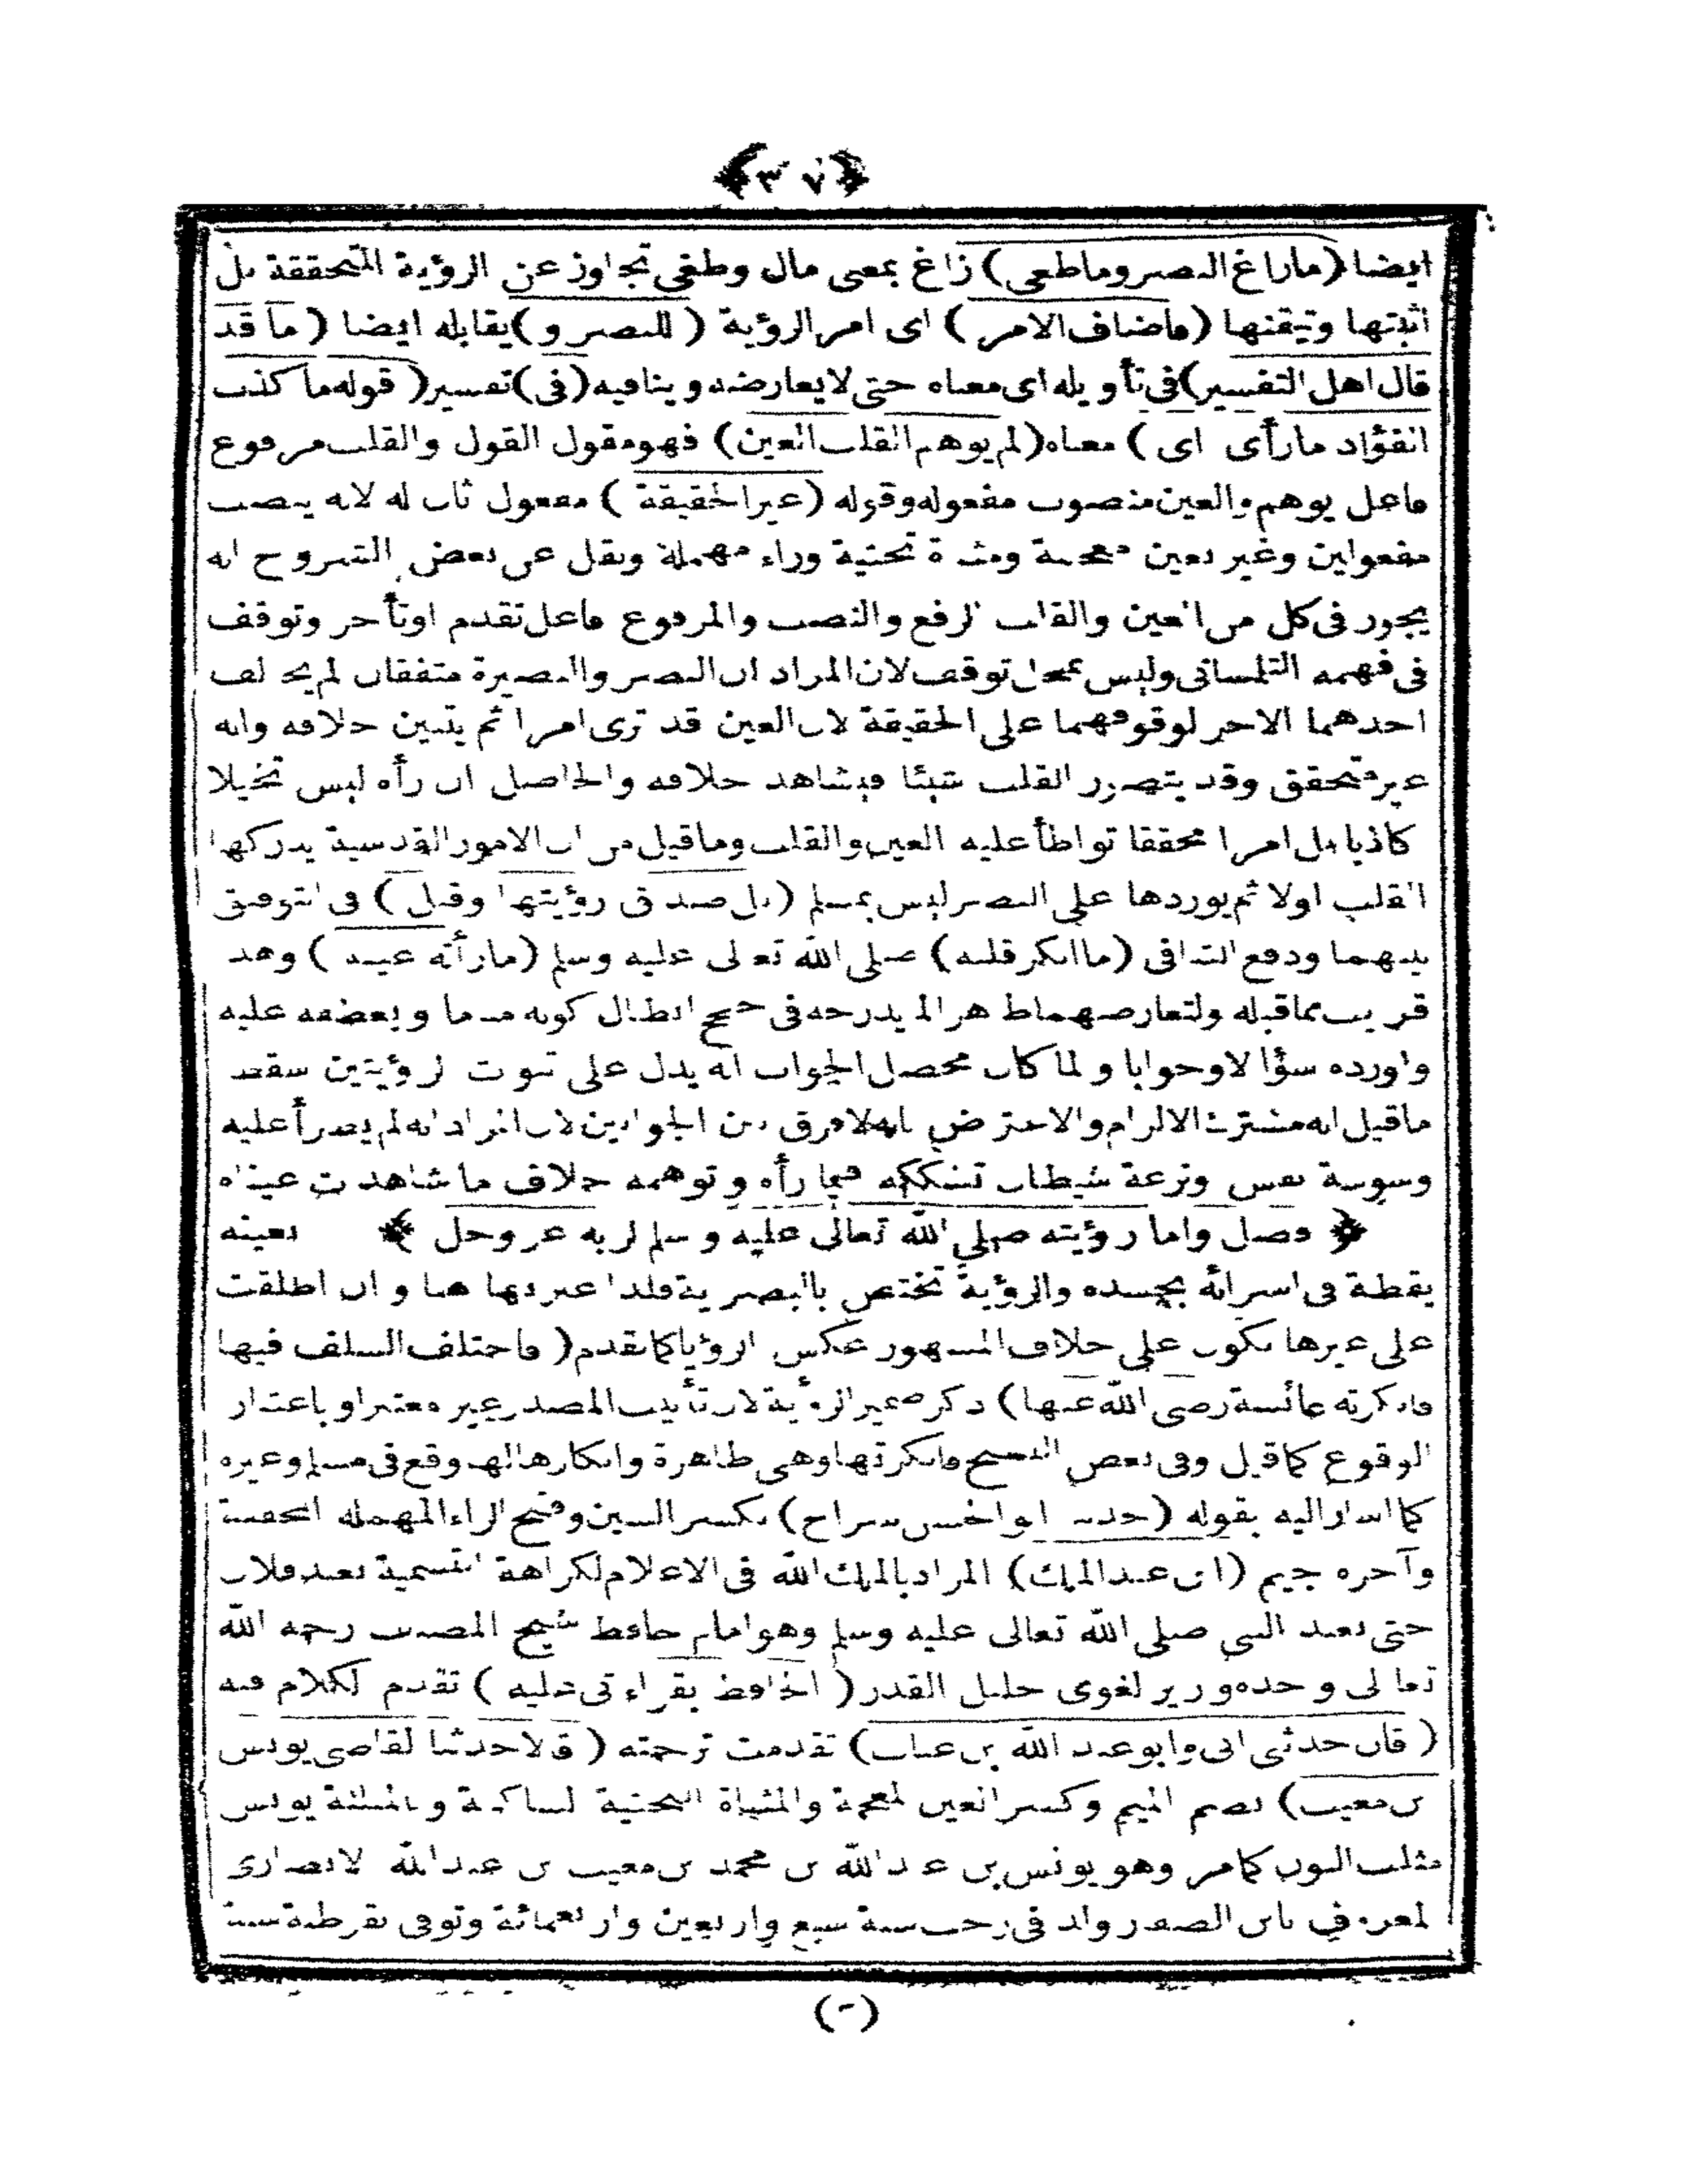 ﴿ ٣٧ ﴾
ايضا (مازاغ البصر وماطغى) زاغ بمعنى مال وطغى تجاوز عن الرؤية المتحققة بل
اثبتها وتيقنها (فاضاف الامر) اى امر الرؤية (للبصر و) يقابله ايضا (ما قد
قال اهل التفسير) فى تأويله اى معناه حتى لايعارضه وينافيه (فى) تفسير (قوله ما كذب
الفؤاد مارأى اى) معناه (لم يوهم القلب العين) فهو مقول القول والقلب مرفوع
فاعل يوهم والعين منصوب مفعوله وقوله (غير الحقيقة) مفعول ثان له لانه ينصب
مفعولين وغير بغين معجمة ومثناة تحتية وراء مهملة ونقل عن بعض الشروح انه
يجوز فى كل من العين والقلب الرفع والنصب والمرفوع فاعل تقدم اوتأخر وتوقف
فى فهمه التلمسانى وليس بمحل توقف لان المراد ان البصر والبصيرة متفقان لم يخالف
احدهما الاخر لوقوفهما على الحقيقة لان العين قد ترى امرا ثم يتبين خلافه وانه
غير متحقق وقد يتصور القلب شيئا فيشاهد خلافه والحاصل ان رأه ليس تخيلا
كاذبا بل امرا محققا تواطأ عليه العين والقلب وماقيل من ان الامور القدسية يدركها
القلب اولا ثم يوردها على البصر ليس بمسلم (بل صدق رؤيتها وقيل) فى التوفيق
بينهما ودفع التنافى (ما انكر قلبه) صلى الله تعالى عليه وسلم (مارأته عينه) وهذ
قريب مماقبله ولتعارضهما ظاهرا لم يدرجه فى حجج ابطال كونه مناما ويعضده عليه
واورده سؤالا وجوابا ولما كان محصل الجواب انه يدل على ثبوت الرؤيتين سقط
ماقيل انه مشترك الالزام والاعتراض بانه لافرق بين الجوابين لان المراد انه لم يطرأ عليه
وسوسة نفس ونزغة شيطان تشككه فيما رأه وتوهمه خلاف ما شاهدت عيناه
﴿ فصل واما رؤيته صلى الله تعالى عليه وسلم لربه عز وجل ﴾ بعينه
يقظة فى اسرائه بجسده والرؤية تختص بالبصرية فلذا عبر بها هنا وان اطلقت
على غيرها تكون على خلاف المشهور عكس الرؤيا كما تقدم (فاختلف السلف فيها
فانكرته عائشة رضى الله عنها) ذكر ضمير الرؤية لان تأنيث المصدر غير معتبر او باعتبار
الوقوع كما قيل وفى بعض النسخ فانكرتها وهى ظاهرة وانكارها لها وقع فى مسلم وغيره
كما اشار اليه بقوله (حدثنا ابو الحسن سراج) بكسر السين وفتح الراء المهملة المخففة
وآخره جيم (ابن عبد الملك) المراد بالملك الله فى الاعلام لكراهة التسمية بعبد فلان
حتى بعبد النبى صلى الله تعالى عليه وسلم وهو امام حافظ شيخ المصنف رحمه الله
تعالى وجده وزير لغوى جليل القدر (الحافظ بقراءتى عليه) تقدم الكلام فيه
(قال حدثنى ابى وابو عبد الله بن عتاب) تقدمت ترجمته (قالا حدثنا القاضى يونس
بن مغيث) بضم الميم وكسر الغين المعجمة والمثناة التحتية الساكنة والمثلثة يونس
مثلث النون كما مر وهو يونس بن عبد الله بن محمد بن مغيث بن عبد الله الانصارى
المعروف بابن الصفار ولد فى رجب سنة سبع واربعين واربعمائة وتوفى بقرطبة سنة